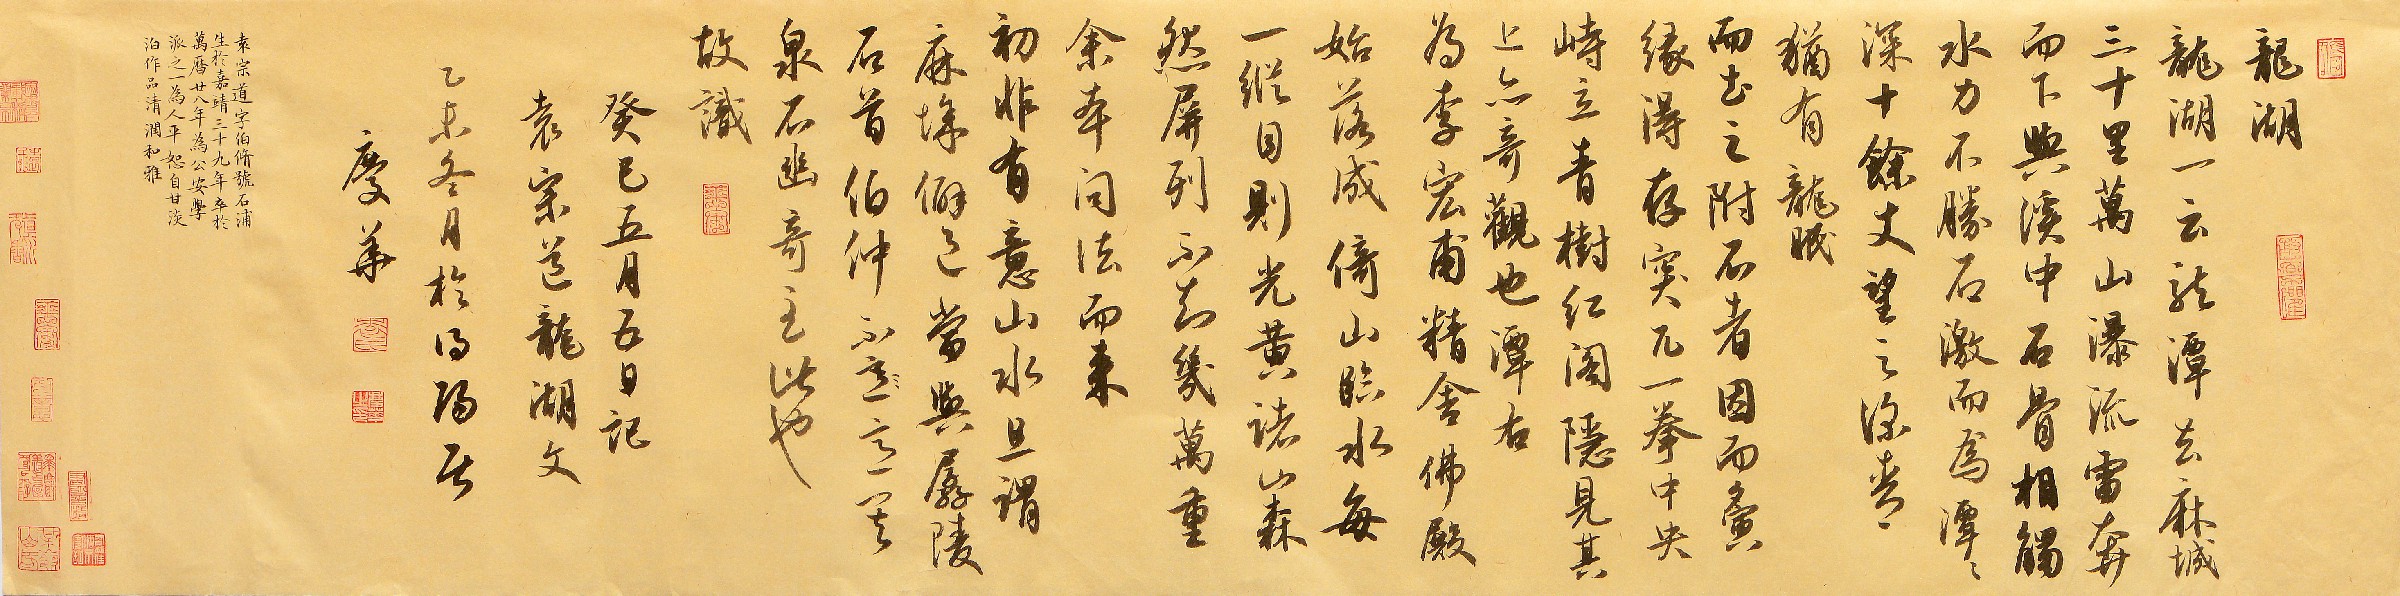 龍湖
龍湖一云龍潭去麻城
三十里萬山瀑流雷奔
而下與溪中石骨相觸
水力不勝石激而為潭潭
深十餘丈望之深青
猶有龍眠
而土之附石者因而夤
緣得存突兀一拳中央
峙立青樹紅閣隱見其
上亦奇觀也潭右
為李宏甫精舍佛殿
始落成倚山臨水每
一縱目則光黃諸山森
然屏列不知幾萬重
余本問法而來
初非有意山水且謂
麻城僻邑當與孱陵
石首伯仲不意其
泉石幽奇至此也
故識
癸巳五月五日記
袁宗道龍湖文
乙未冬月於
慶華
袁宗道字伯脩號石浦
生於嘉靖三十九年卒於
萬曆廿八年為公安學
派之一為人平恕自甘淡
泊作品清潤和雅